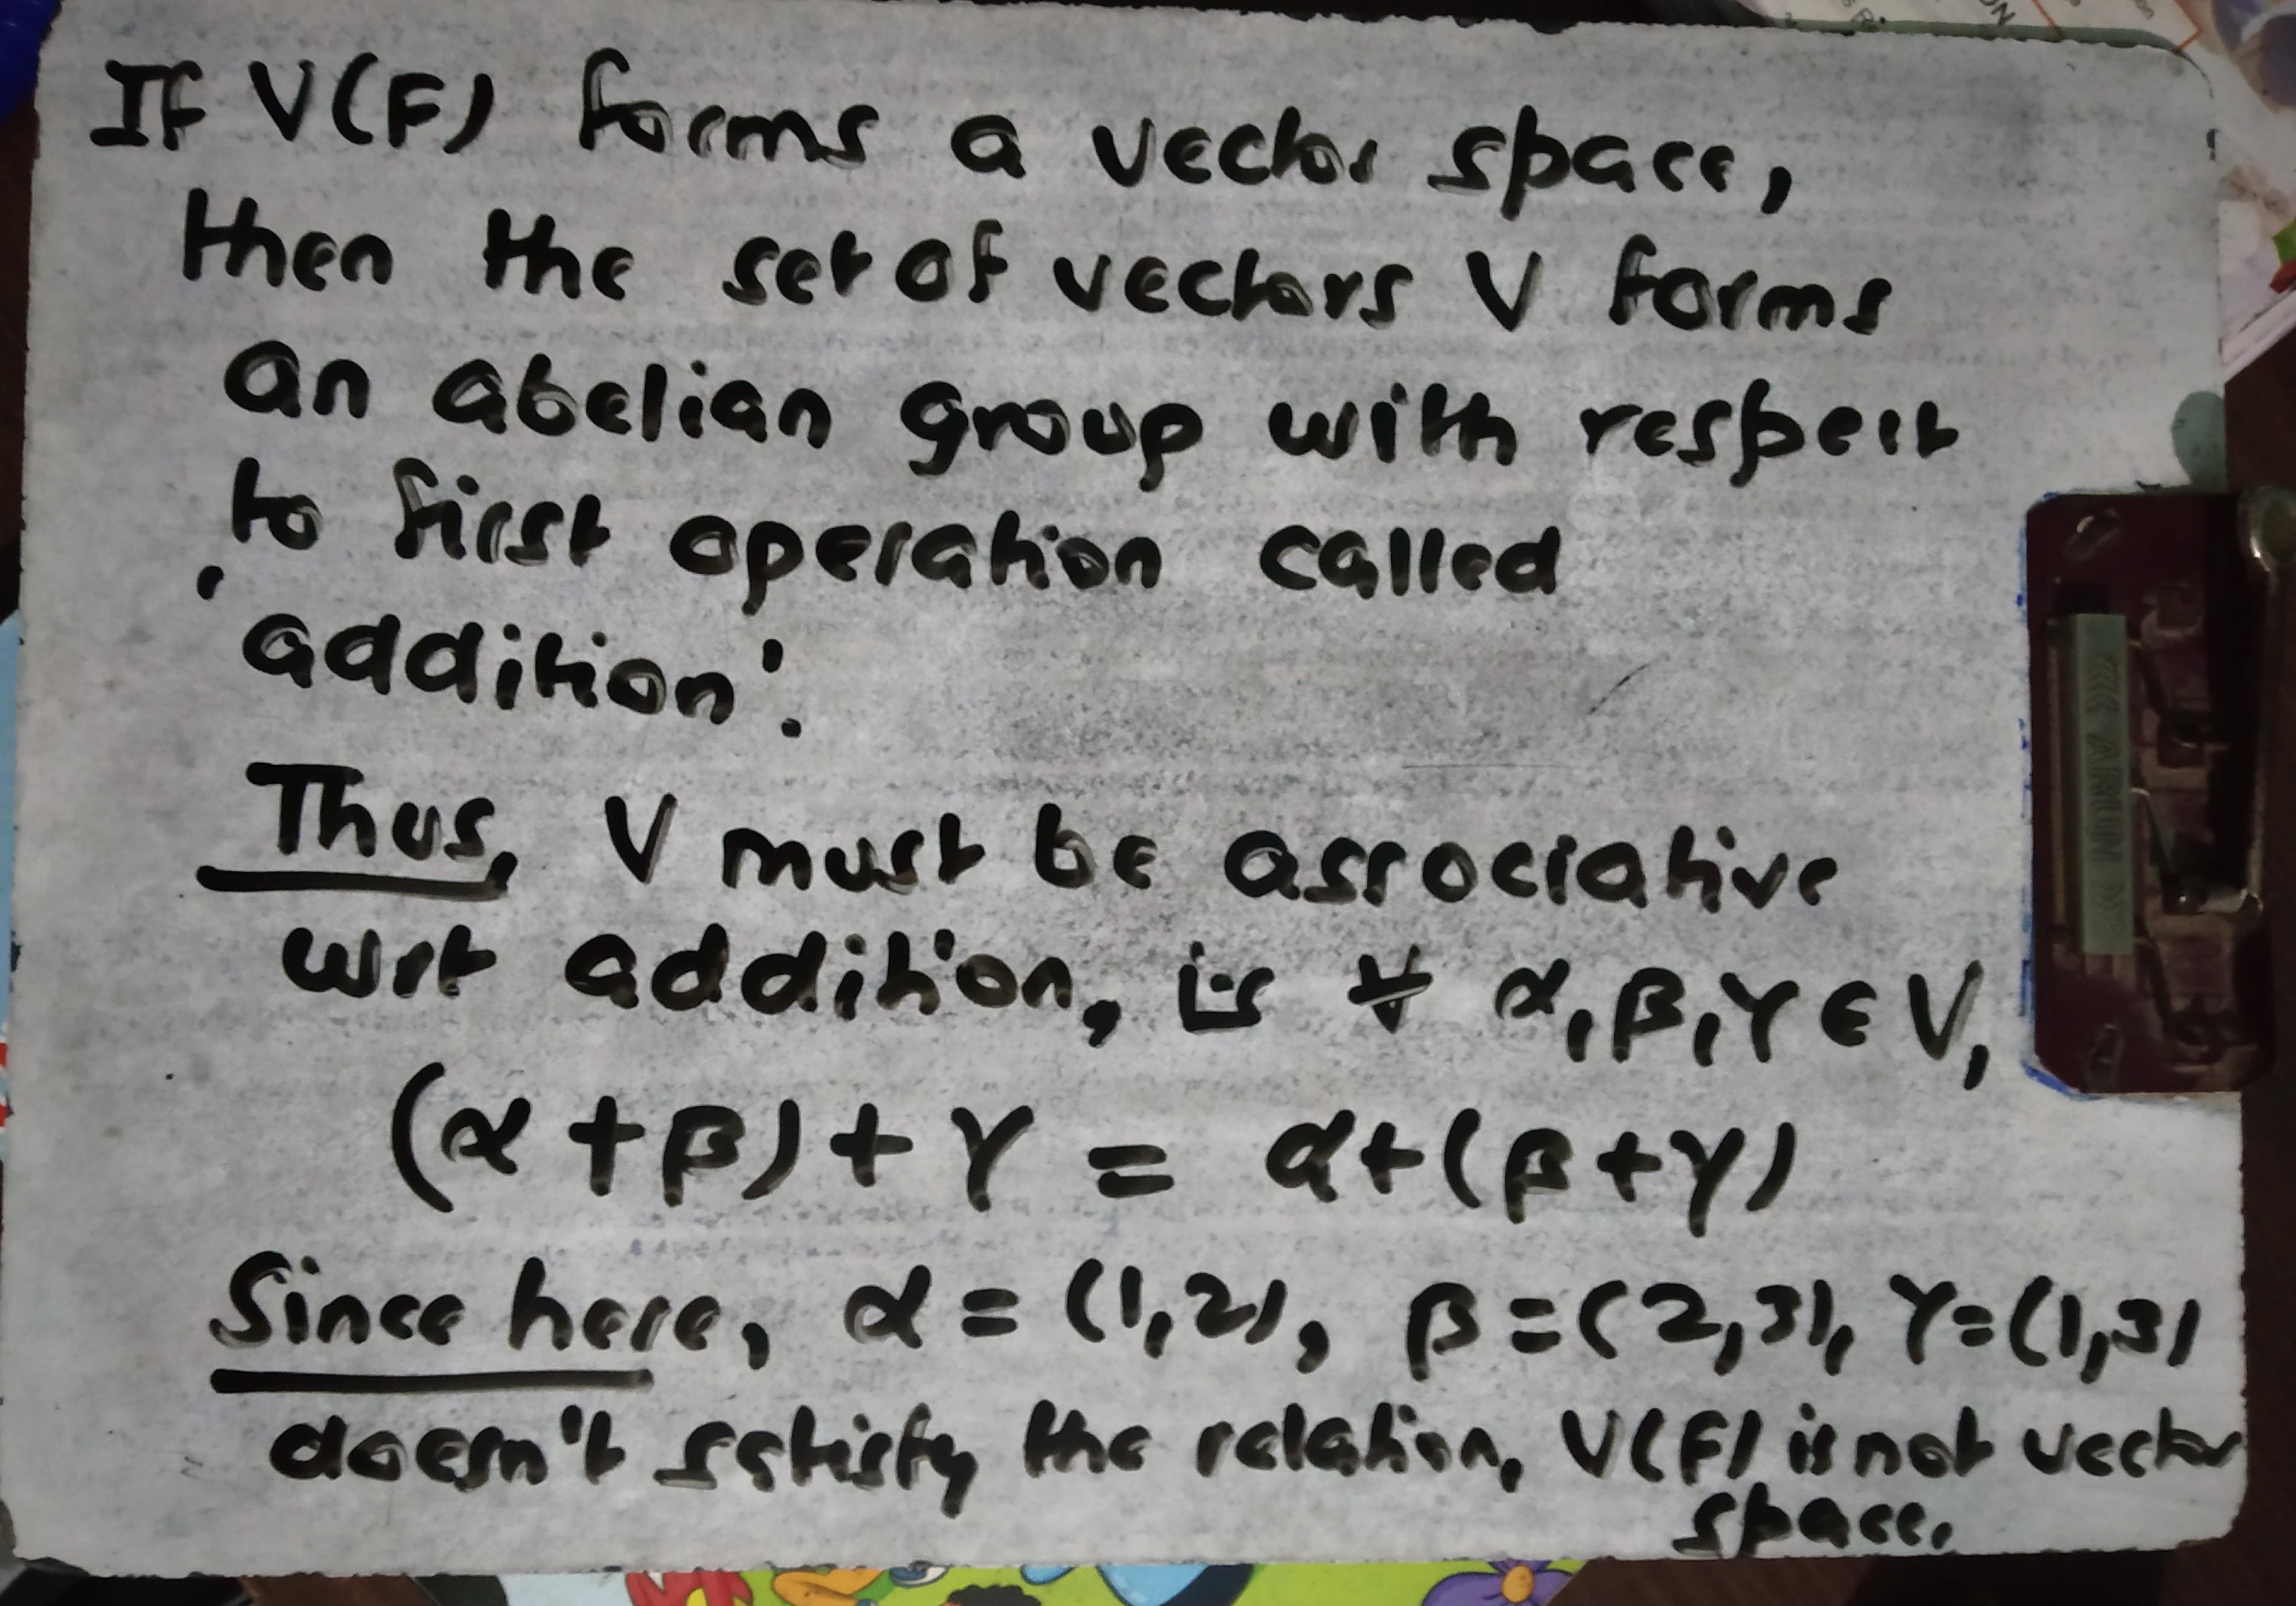 If V(F) forms a vector space,
then the set of vectors V forms
an abelian group with respect
to first operation called
'addition'.
Thus, V must be associative
wrt addition, is ∀ α, β, γ ∈ V,
(α + β) + γ = α + (β + γ)
Since here, α = (1,2), β = (2,3), γ = (1,3)
doesn't satisfy the relation, V(F) is not vector
space.
ARUN